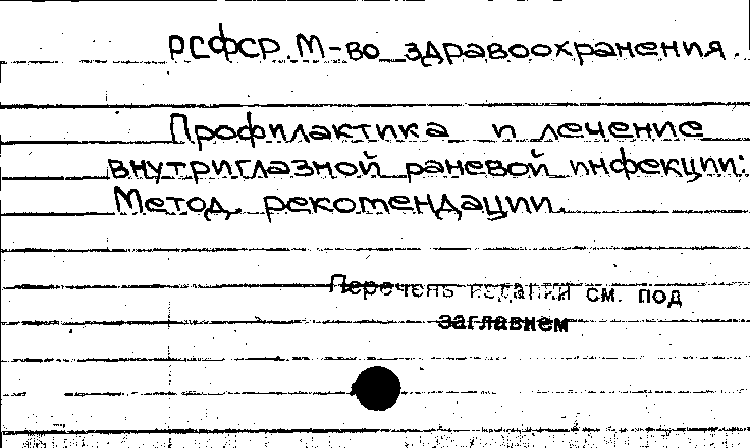 РСФСР. М-во здравоохранения.
Профилактика и лечение
внутриглазной раневой инфекции:
Метод. рекомендации.
Перечень изданий см. под
заглавием